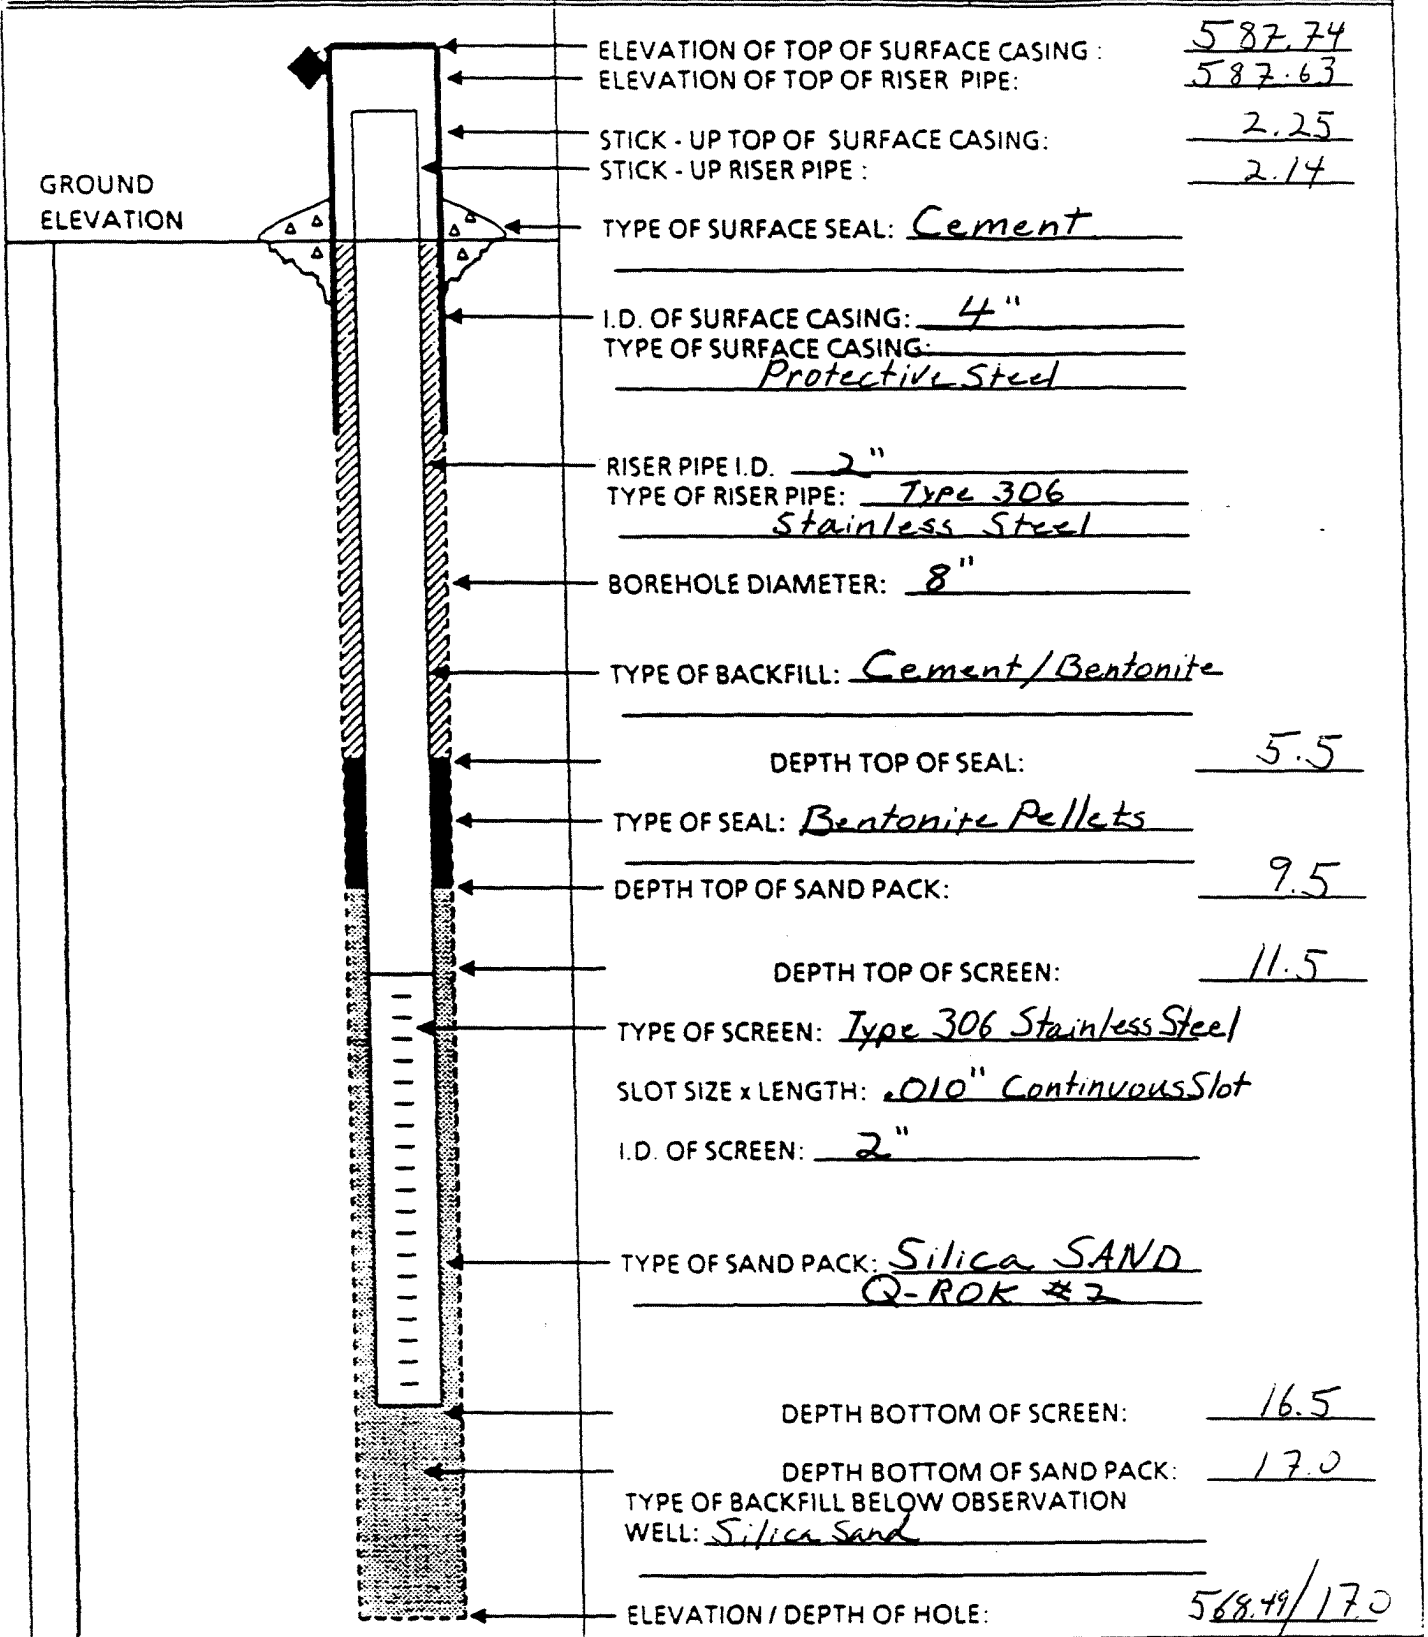 ELEVATION OF TOP OF SURFACE CASING : 587.74
ELEVATION OF TOP OF RISER PIPE: 587.63
STICK - UP TOP OF SURFACE CASING: 2.25
STICK - UP RISER PIPE : 2.14
GROUND
ELEVATION
TYPE OF SURFACE SEAL: Cement
I.D. OF SURFACE CASING: 4"
TYPE OF SURFACE CASING:
Protective Steel
RISER PIPE I.D. 2"
TYPE OF RISER PIPE: Type 306
Stainless Steel
BOREHOLE DIAMETER: 8"
TYPE OF BACKFILL: Cement/Bentonite
DEPTH TOP OF SEAL: 5.5
TYPE OF SEAL: Bentonite Pellets
DEPTH TOP OF SAND PACK: 9.5
DEPTH TOP OF SCREEN: 11.5
TYPE OF SCREEN: Type 306 Stainless Steel
SLOT SIZE x LENGTH: .010" Continuous Slot
I.D. OF SCREEN: 2"
TYPE OF SAND PACK: Silica SAND
Q-ROK #2
DEPTH BOTTOM OF SCREEN: 16.5
DEPTH BOTTOM OF SAND PACK: 17.0
TYPE OF BACKFILL BELOW OBSERVATION
WELL: Silica Sand
ELEVATION / DEPTH OF HOLE: 568.49/17.0